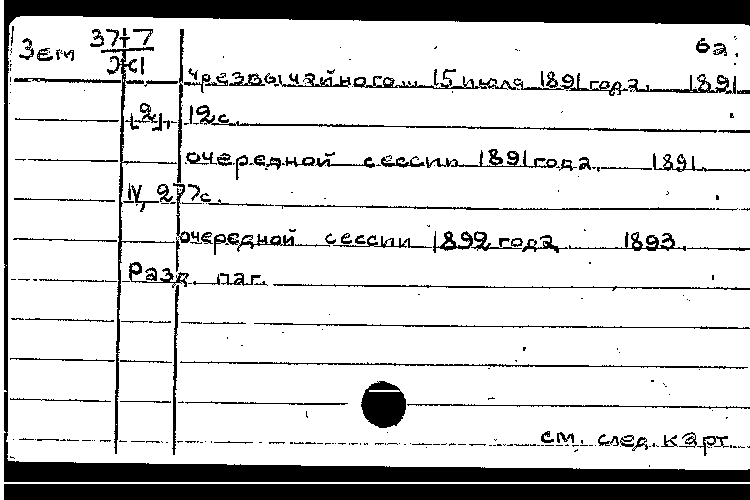 Зем 37-7 6а.
чрезвычайного... 15 июля 1891 года. 1891
[2], 12 с.
очередной сессии 1891 года. 1891.
IV, 277 с.
очередной сессии 1892 года 1893.
Разд. паг.
см. след. карт.